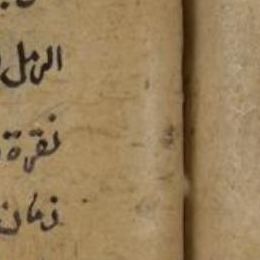 الرمل
نقرة
زمان